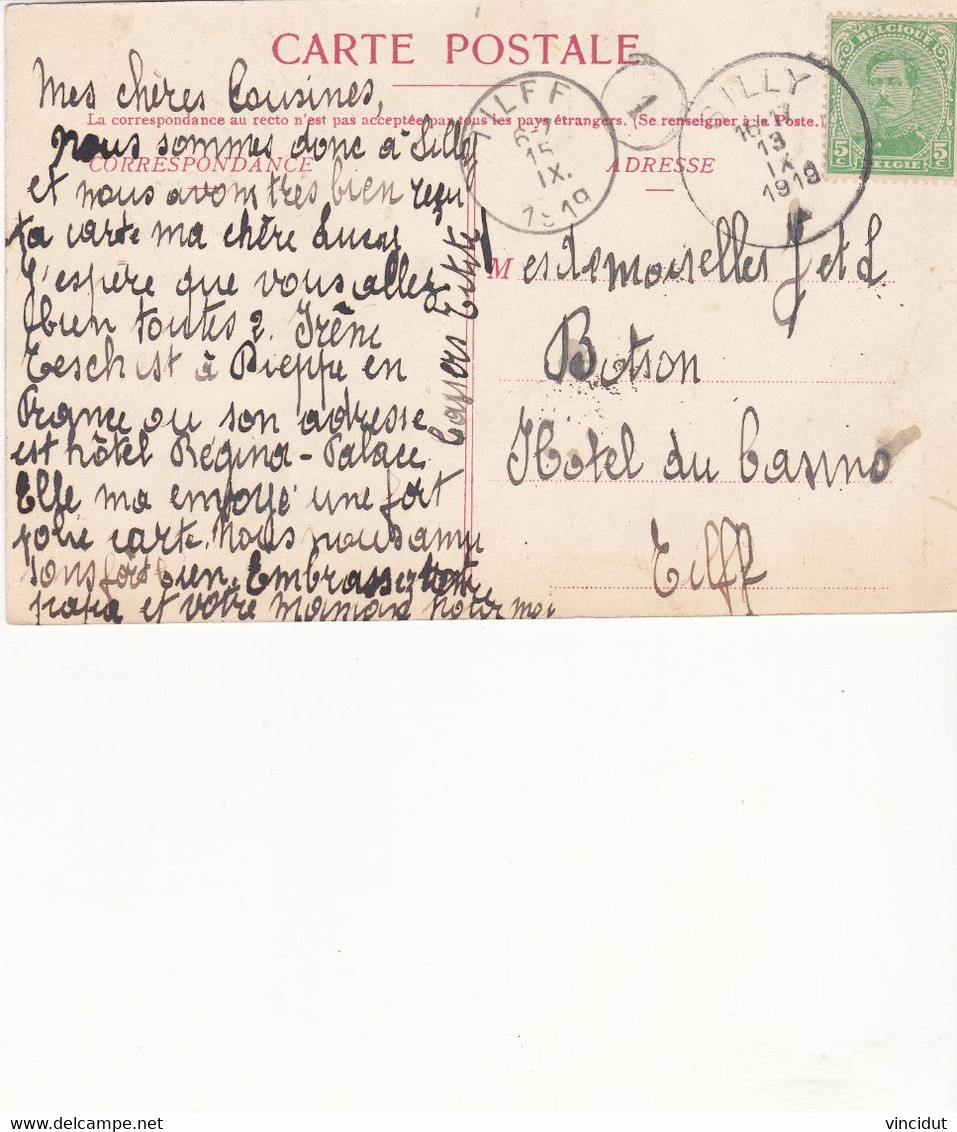 CARTE POSTALE
La correspondance au recto n'est pas acceptée par tous les pays étrangers. (Se renseigner à la Poste.)
CORRESPONDANCE
ADRESSE
BELGIQUE
5c 5c
BELGIË
TILFF
6-7
15
IX.
1919
1
SILLY
16-17
13
IX
1919
Mes chères Cousines,
nous sommes donc à Silly
et nous avons très bien reçu
ta carte ma chère Lucy
J'espère que vous allez
bien toutes 2. Irène
Tesch est à Dieppe en
France ou son adresse
est hôtel Régina-Palace
Elfe ma envoyé une fort
jolie carte. Nous nous amu
sons fort bien. Embrassez
papa et votre maman
Mesdemoiselles J et L
Botson
Hotel du Casino
Tilff
vincidut